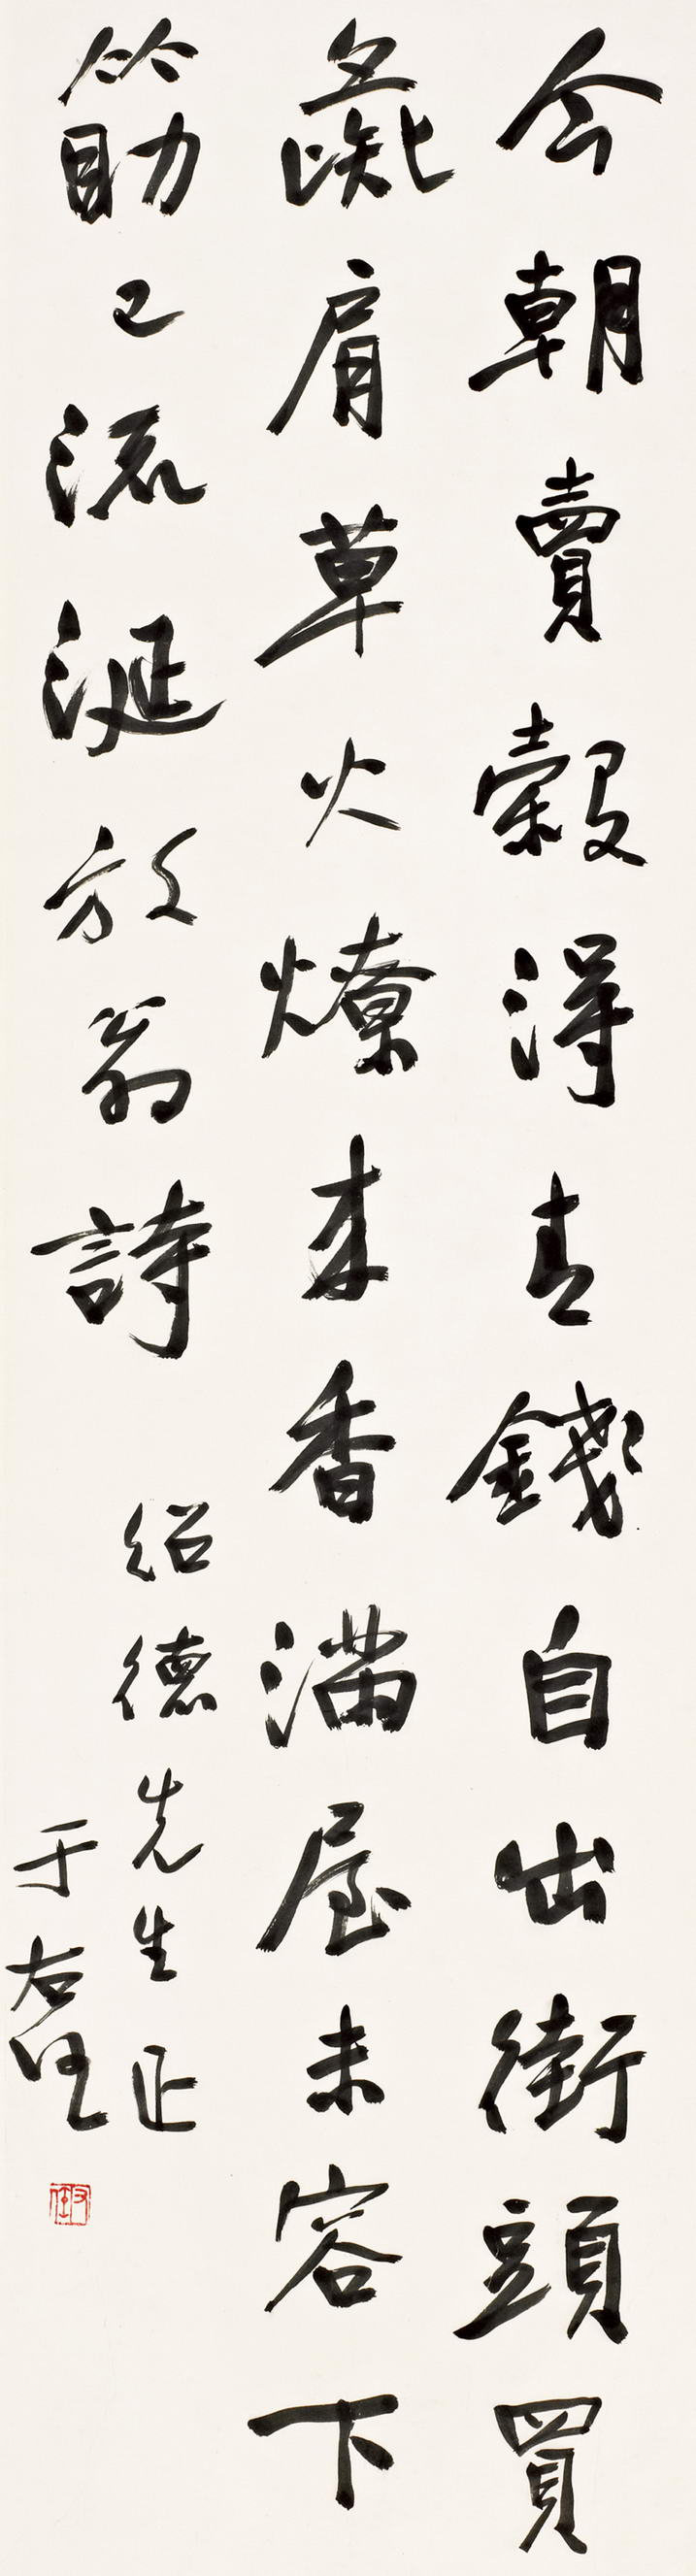 今朝賣穀得青錢自出街頭買
彘肩草火燎來香滿屋未容下
筯已流涎放翁詩
紹德先生正
于右任
右任